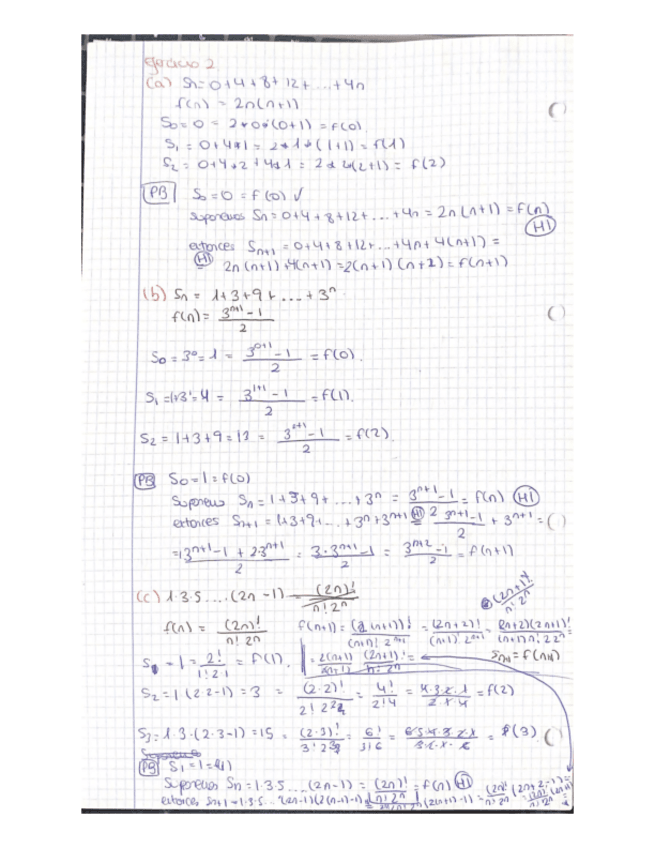 Ejercicio 2
(a) Sn = 0+4+8+12+...+4n
f(n) = 2n(n+1)
S0 = 0 = 2*0*(0+1) = f(0)
S1 = 0+4*1 = 2*1*(1+1) = f(1)
S2 = 0+4*2+4*1 = 2*2(2+1) = f(2)
PB S0 = 0 = f(0) ✓
Suponemos Sn = 0+4+8+12+...+4n = 2n(n+1) = f(n)
HI
entonces Sn+1 = 0+4+8+12+...+4n+4(n+1) =
HI 2n(n+1)+4(n+1) = 2(n+1)(n+2) = f(n+1)
(b) Sn = 1+3+9+...+3^n
f(n) = (3^(n+1) - 1)/2
S0 = 3^0 = 1 = (3^(0+1) - 1)/2 = f(0).
S1 = 1+3^1 = 4 = (3^(1+1) - 1)/2 = f(1).
S2 = 1+3+9 = 13 = (3^(2+1) - 1)/2 = f(2).
PB S0 = 1 = f(0)
Suponemos Sn = 1+3+9+...+3^n = (3^(n+1) - 1)/2 = f(n) HI
entonces Sn+1 = 1+3+9+...+3^n+3^(n+1) HI = (3^(n+1) - 1)/2 + 3^(n+1) =
= (3^(n+1) - 1 + 2·3^(n+1))/2 = (3·3^(n+1) - 1)/2 = (3^(n+2) - 1)/2 = f(n+1)
(c) 1·3·5....(2n-1) = (2n)!/(n! 2^n)
f(n) = (2n)!/(n! 2^n) f(n+1) = (2(n+1))!/((n+1)! 2^(n+1)) = (2n+2)!/((n+1)! 2^(n+1)) = (2n+2)(2n+1)!/((n+1)n! 2 2^n) =
S1 = 1 = 2!/(1! 2·1) = f(1). = 2(n+1)(2n+1)! Sn+1 = f(n+1)
S2 = 1(2·2-1) = 3 = (2·2)!/(2! 2^2) = 4!/(2! 4) = (4·3·2·1)/(2·4) = f(2)
S3 = 1·3·(2·3-1) = 15 = (2·3)!/(3! 2^3) = 6! = f(3)
PB S1 = 1 = f(1)
Suponemos Sn = 1·3·5...(2n-1) = (2n)!/(n! 2^n) = f(n) HI
entonces Sn+1 = 1·3·5...(2n-1)(2(n+1)-1) =